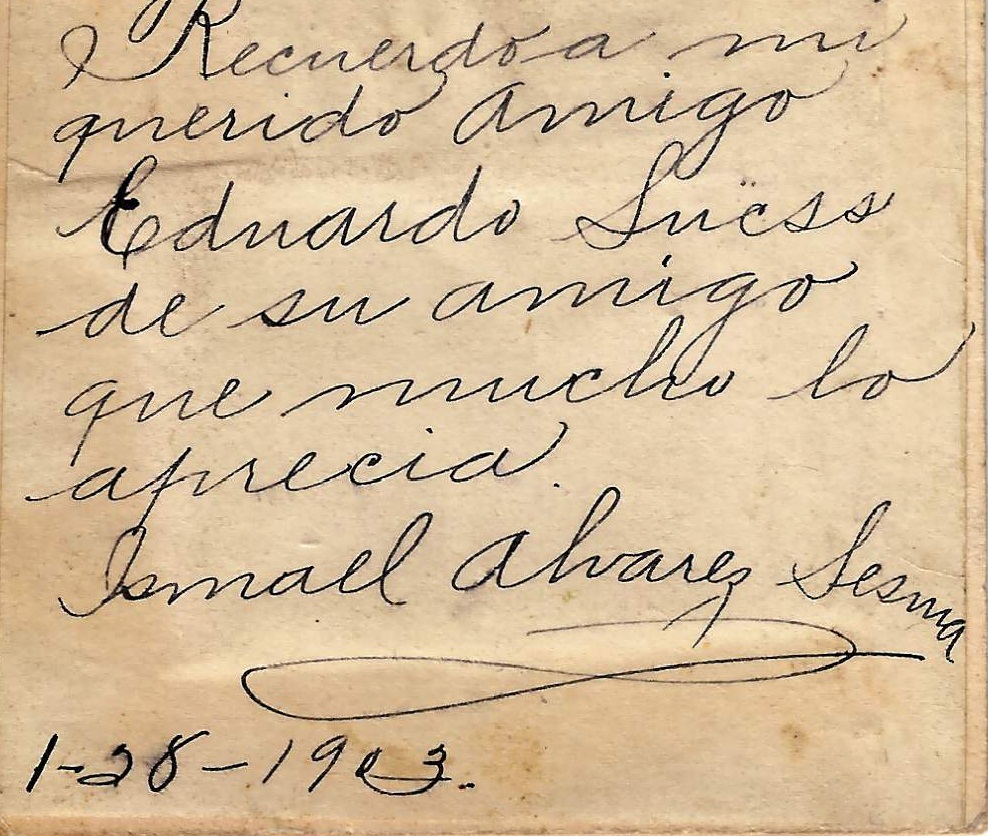 Recuerdo a mi
querido amigo
Eduardo Süess
de su amigo
que mucho lo
aprecia.
Ismael Alvarez Sesma
1-28-1903.